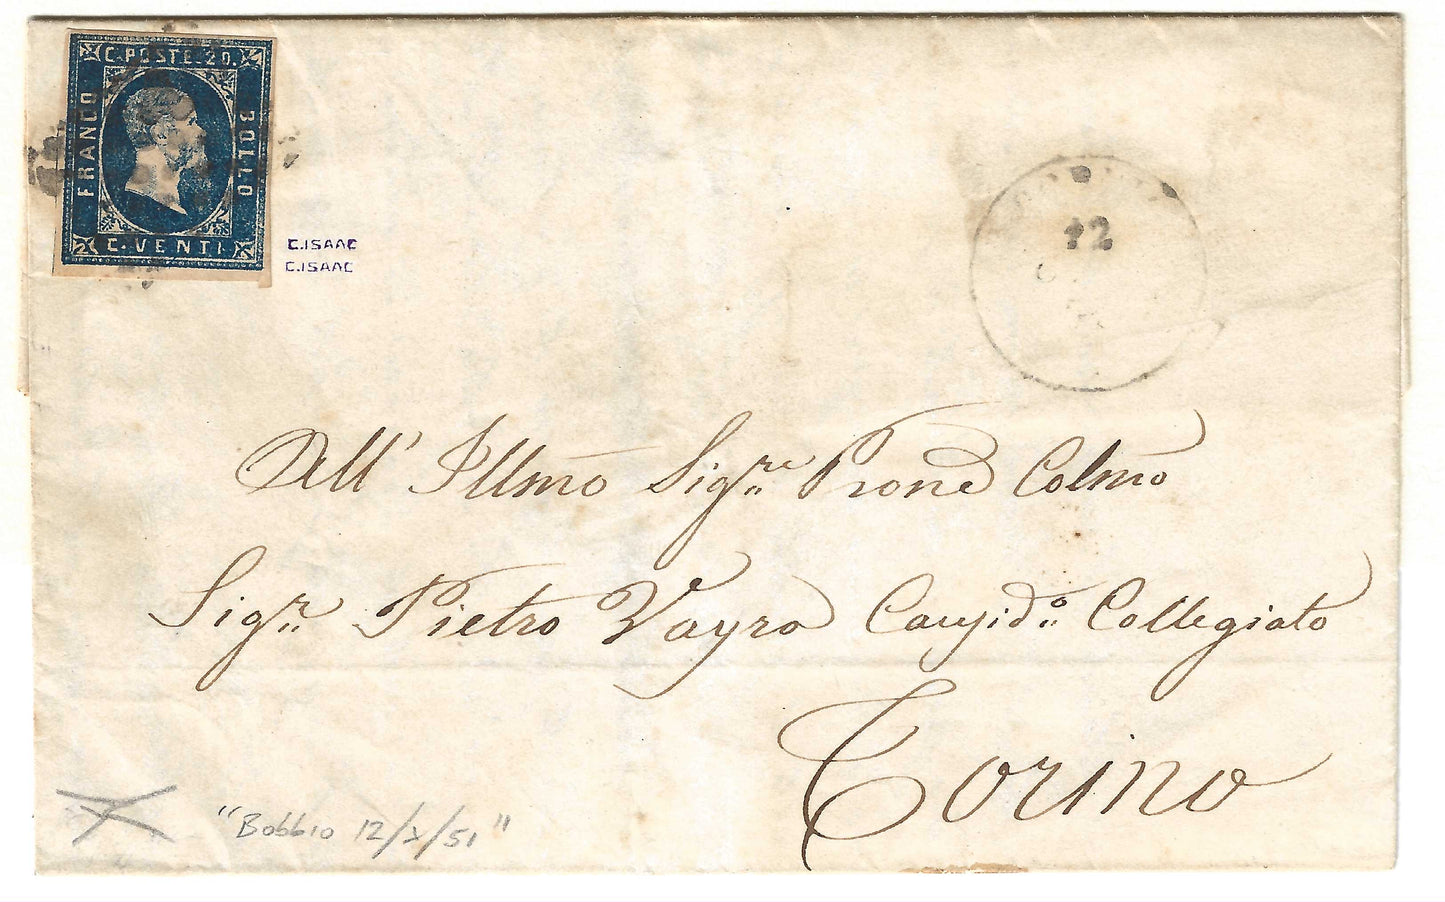 C. POSTE. 20.
FRANCO
BOLLO
C. VENTI
C.ISAAC
C.ISAAC
12
Dell' Illmo Sigre Prone Colmo
Sigr Pietro Vayra Collegiato
Torino
"Bobbio 12/X/51"